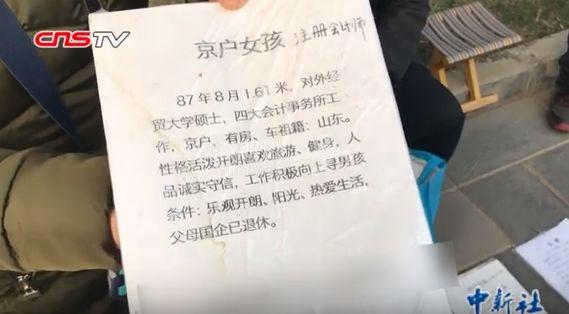 CNSTV
京户女孩 注册会计师
87年8月1.61米，对外经
贸大学硕士，四大会计事务所工
作，京户，有房、车祖籍：山东。
性格活泼开朗喜欢旅游、健身，人
品诚实守信，工作积极向上寻男孩
条件：乐观开朗、阳光、热爱生活，
父母国企已退休。
中新社